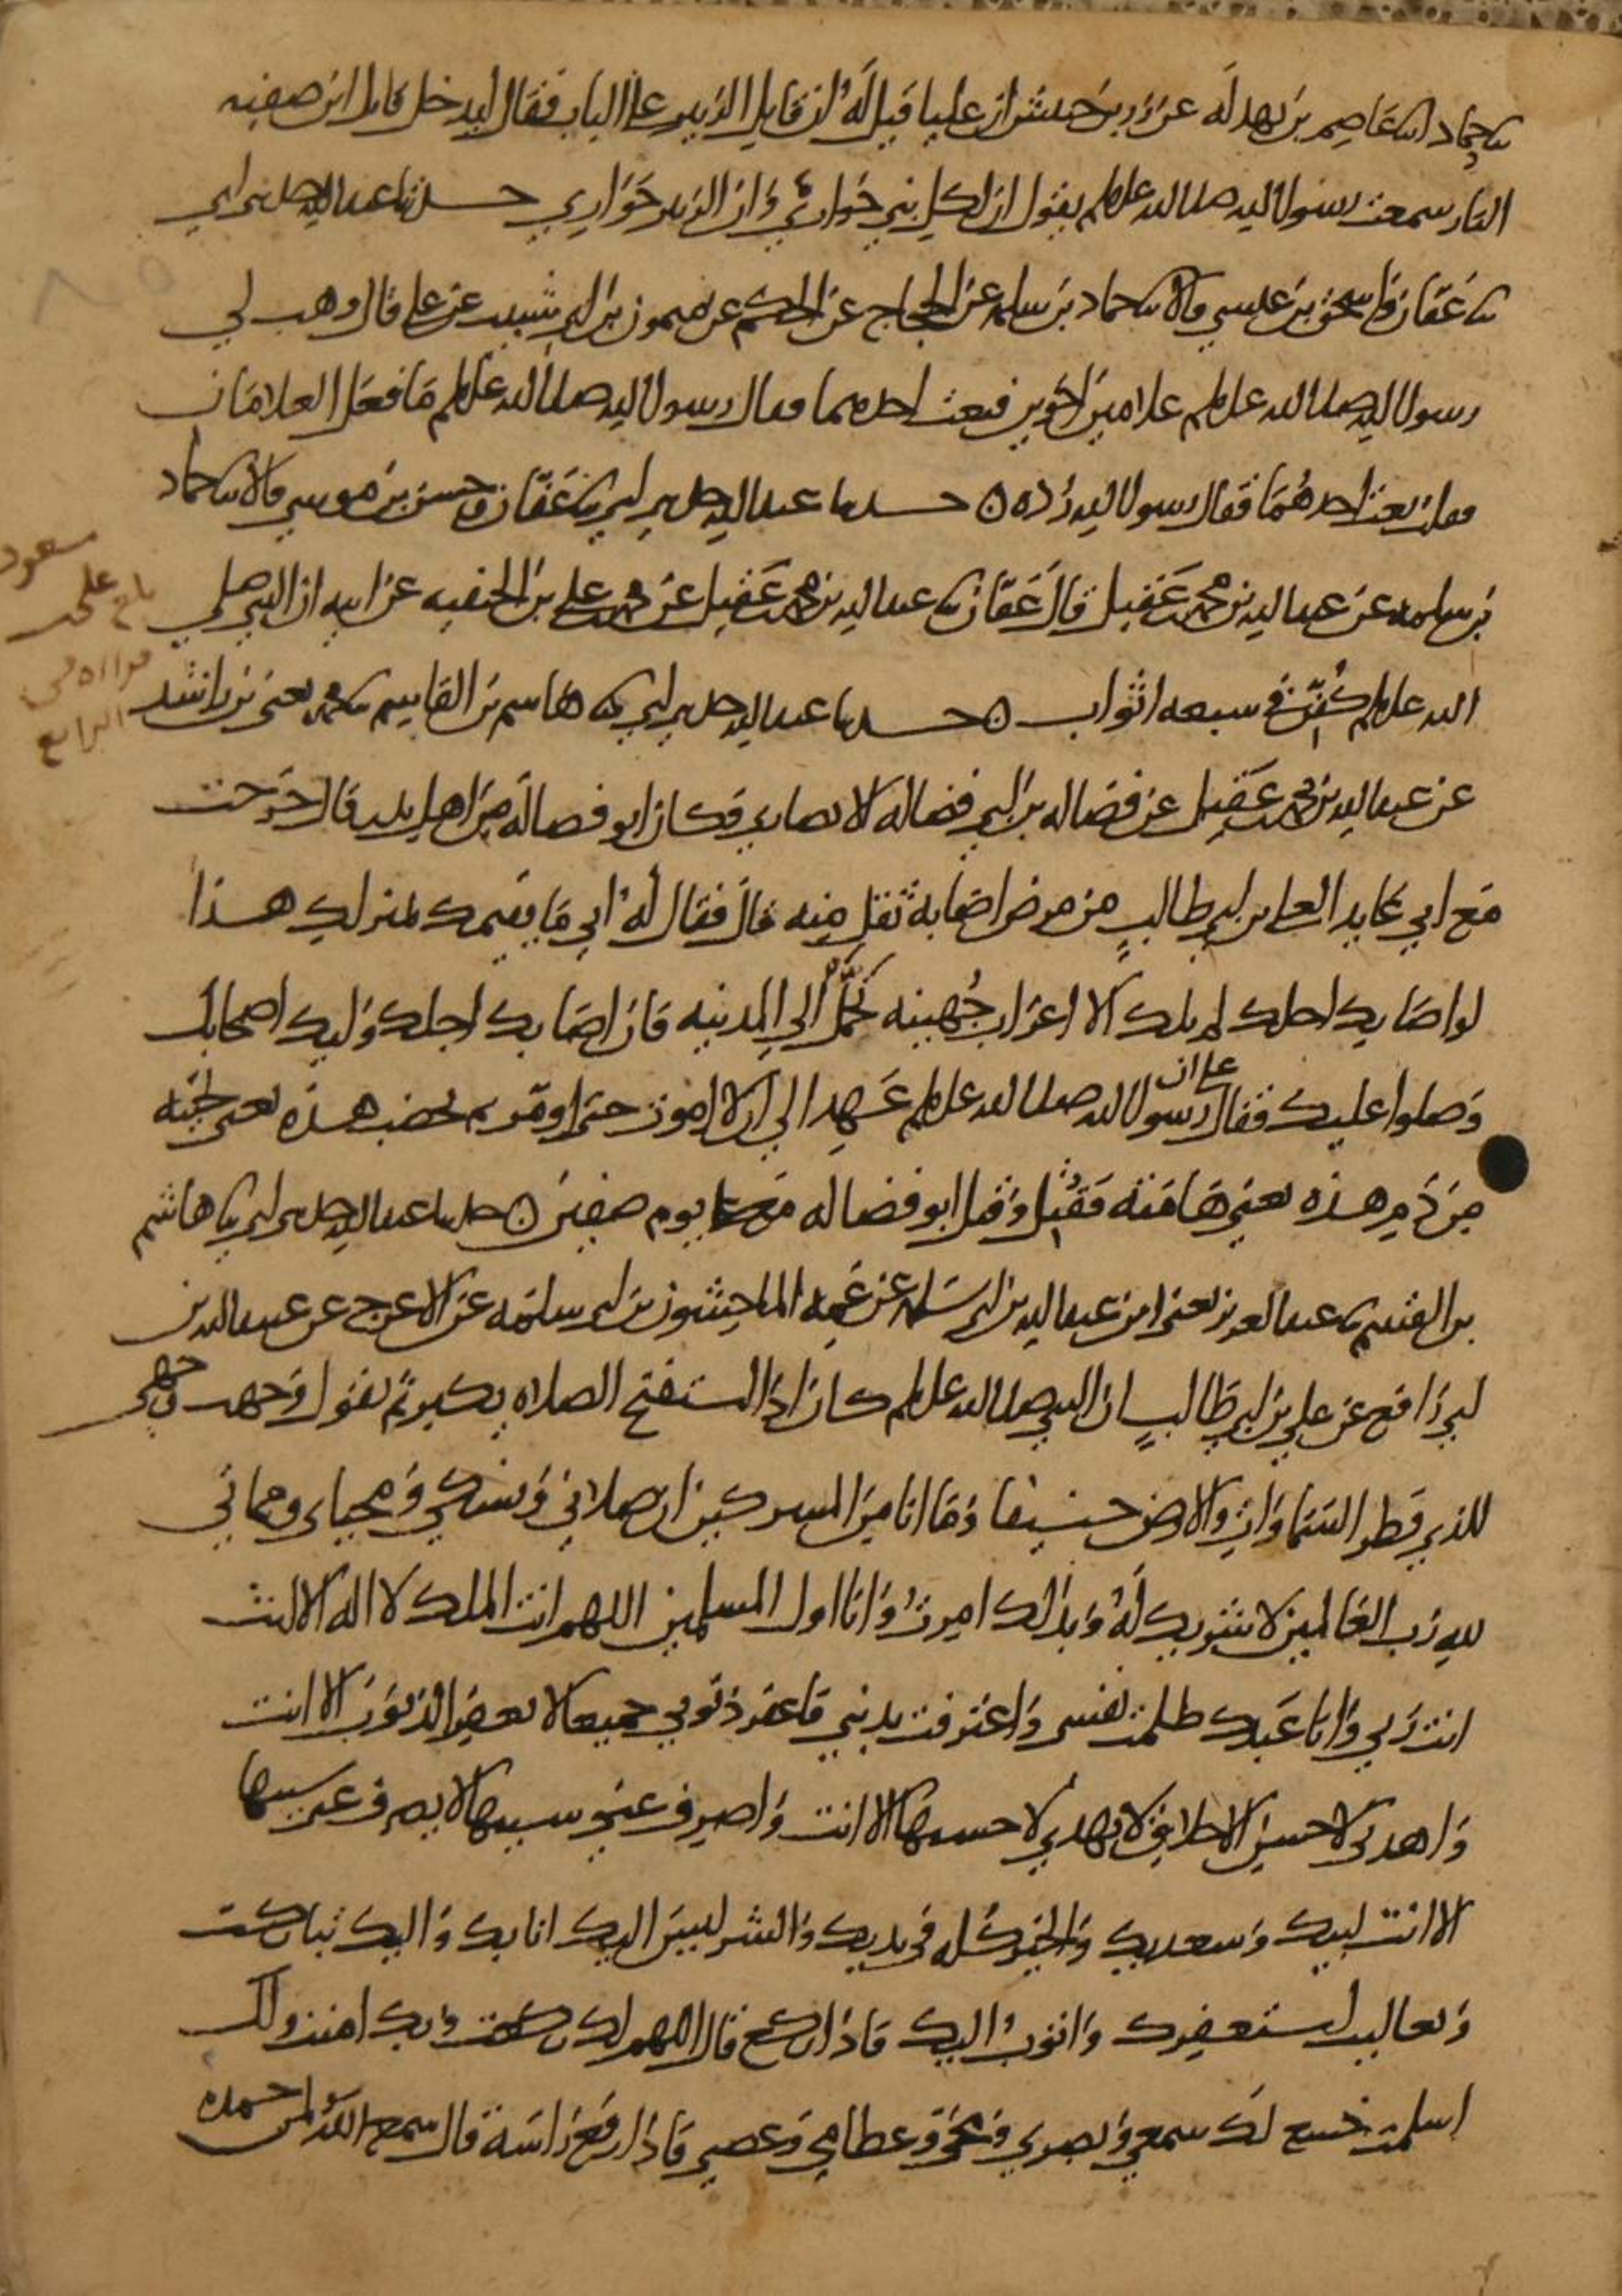 نا حماد انا عاصم بن بهدلة عن زر بن حبيش ان عليا قيل له ان قاتل الزبير على الباب فقال ليدخل قاتل ابن صفيه
النار سمعت رسول الله صلى الله عليه وسلم يقول ان لكل نبي حواري وان الزبير حواري حدثنا عبد الله حدثني ابي
نا عفان واسحق بن عيسى قالا نا حماد بن سلمه عن الحجاج عن الحكم عن ميمون بن ابي شبيب عن علي قال وهب لي
رسول الله صلى الله عليه وسلم غلامين اخوين فبعت احدهما فقال رسول الله صلى الله عليه وسلم ما فعل الغلامان
فقلت بعت احدهما فقال رسول الله رده ه حدثنا عبد الله حدثني ابي نا عفان وحسن بن موسى قالا نا حماد
بن سلمه عن عبد الله بن محمد بن عقيل قال عفان نا عبد الله بن محمد بن عقيل عن محمد بن علي بن الحنفيه عن ابيه ان النبي صلى
الله عليه وسلم كفن في سبعه اثواب ه حدثنا عبد الله حدثني ابي نا هاشم بن القاسم نا محمد يعني بن راشد
عن عبد الله بن محمد بن عقيل عن فضاله بن ابي فضاله الانصاري وكان ابو فضالة من اهل بدر قال خرجت
مع ابي عايدا لعلي بن ابي طالب من مرض اصابه ثقل منه قال فقال له ابي ما يقيمك بمنزلك هذا
لو اصابك اجلك لم يلك الا اعراب جهينه تحمل الى المدينه فان اصابك اجلك وليك اصحابك
وصلوا عليك فقال علي ان رسول الله صلى الله عليه وسلم عهد الي ان لا اموت حتى اومر ثم تخضب هذه يعني لحيته
من دم هذه يعني هامته فقتل وقتل ابو فضاله مع علي يوم صفين ه حدثنا عبد الله حدثني ابي نا هاشم
بن القسم نا عبد العزيز يعني ابن عبد الله بن ابي سلمه عن عمه الماجشون بن ابي سلمه عن الاعرج عن عبيد الله بن
ابي رافع عن علي بن ابي طالب ان النبي صلى الله عليه وسلم كان اذا استفتح الصلاه يكبر ثم يقول وجهت وجهي
للذي فطر السماوات والارض حنيفا وما انا من المشركين ان صلاتي ونسكي ومحياي ومماتي
لله رب العالمين لا شريك له وبذلك امرت وانا اول المسلمين اللهم انت الملك لا اله الا انت
انت ربي وانا عبدك ظلمت نفسي واعترفت بذنبي فاغفر ذنوبي جميعا لا يغفر الذنوب الا انت
واهدني لاحسن الاخلاق لا يهدي لاحسنها الا انت واصرف عني سييها لا يصرف عني سييها
الا انت لبيك وسعديك والخير كله في يديك والشر ليس اليك انا بك واليك تباركت
وتعاليت استغفرك واتوب اليك فاذا ركع قال اللهم لك ركعت وبك امنت ولك
اسلمت خشع لك سمعي وبصري ومخي وعظامي وعصبي فاذا رفع راسه قال سمع الله لمن حمده
مسعود
بلغ علي
الرابع